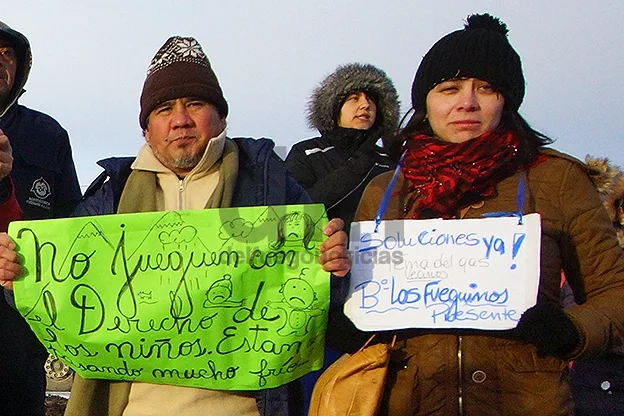 No jueguen con
el Derecho de
los niños. Están
pasando mucho frío
Soluciones ya!
Tema del gas
Bº Los Fueguinos
Presente